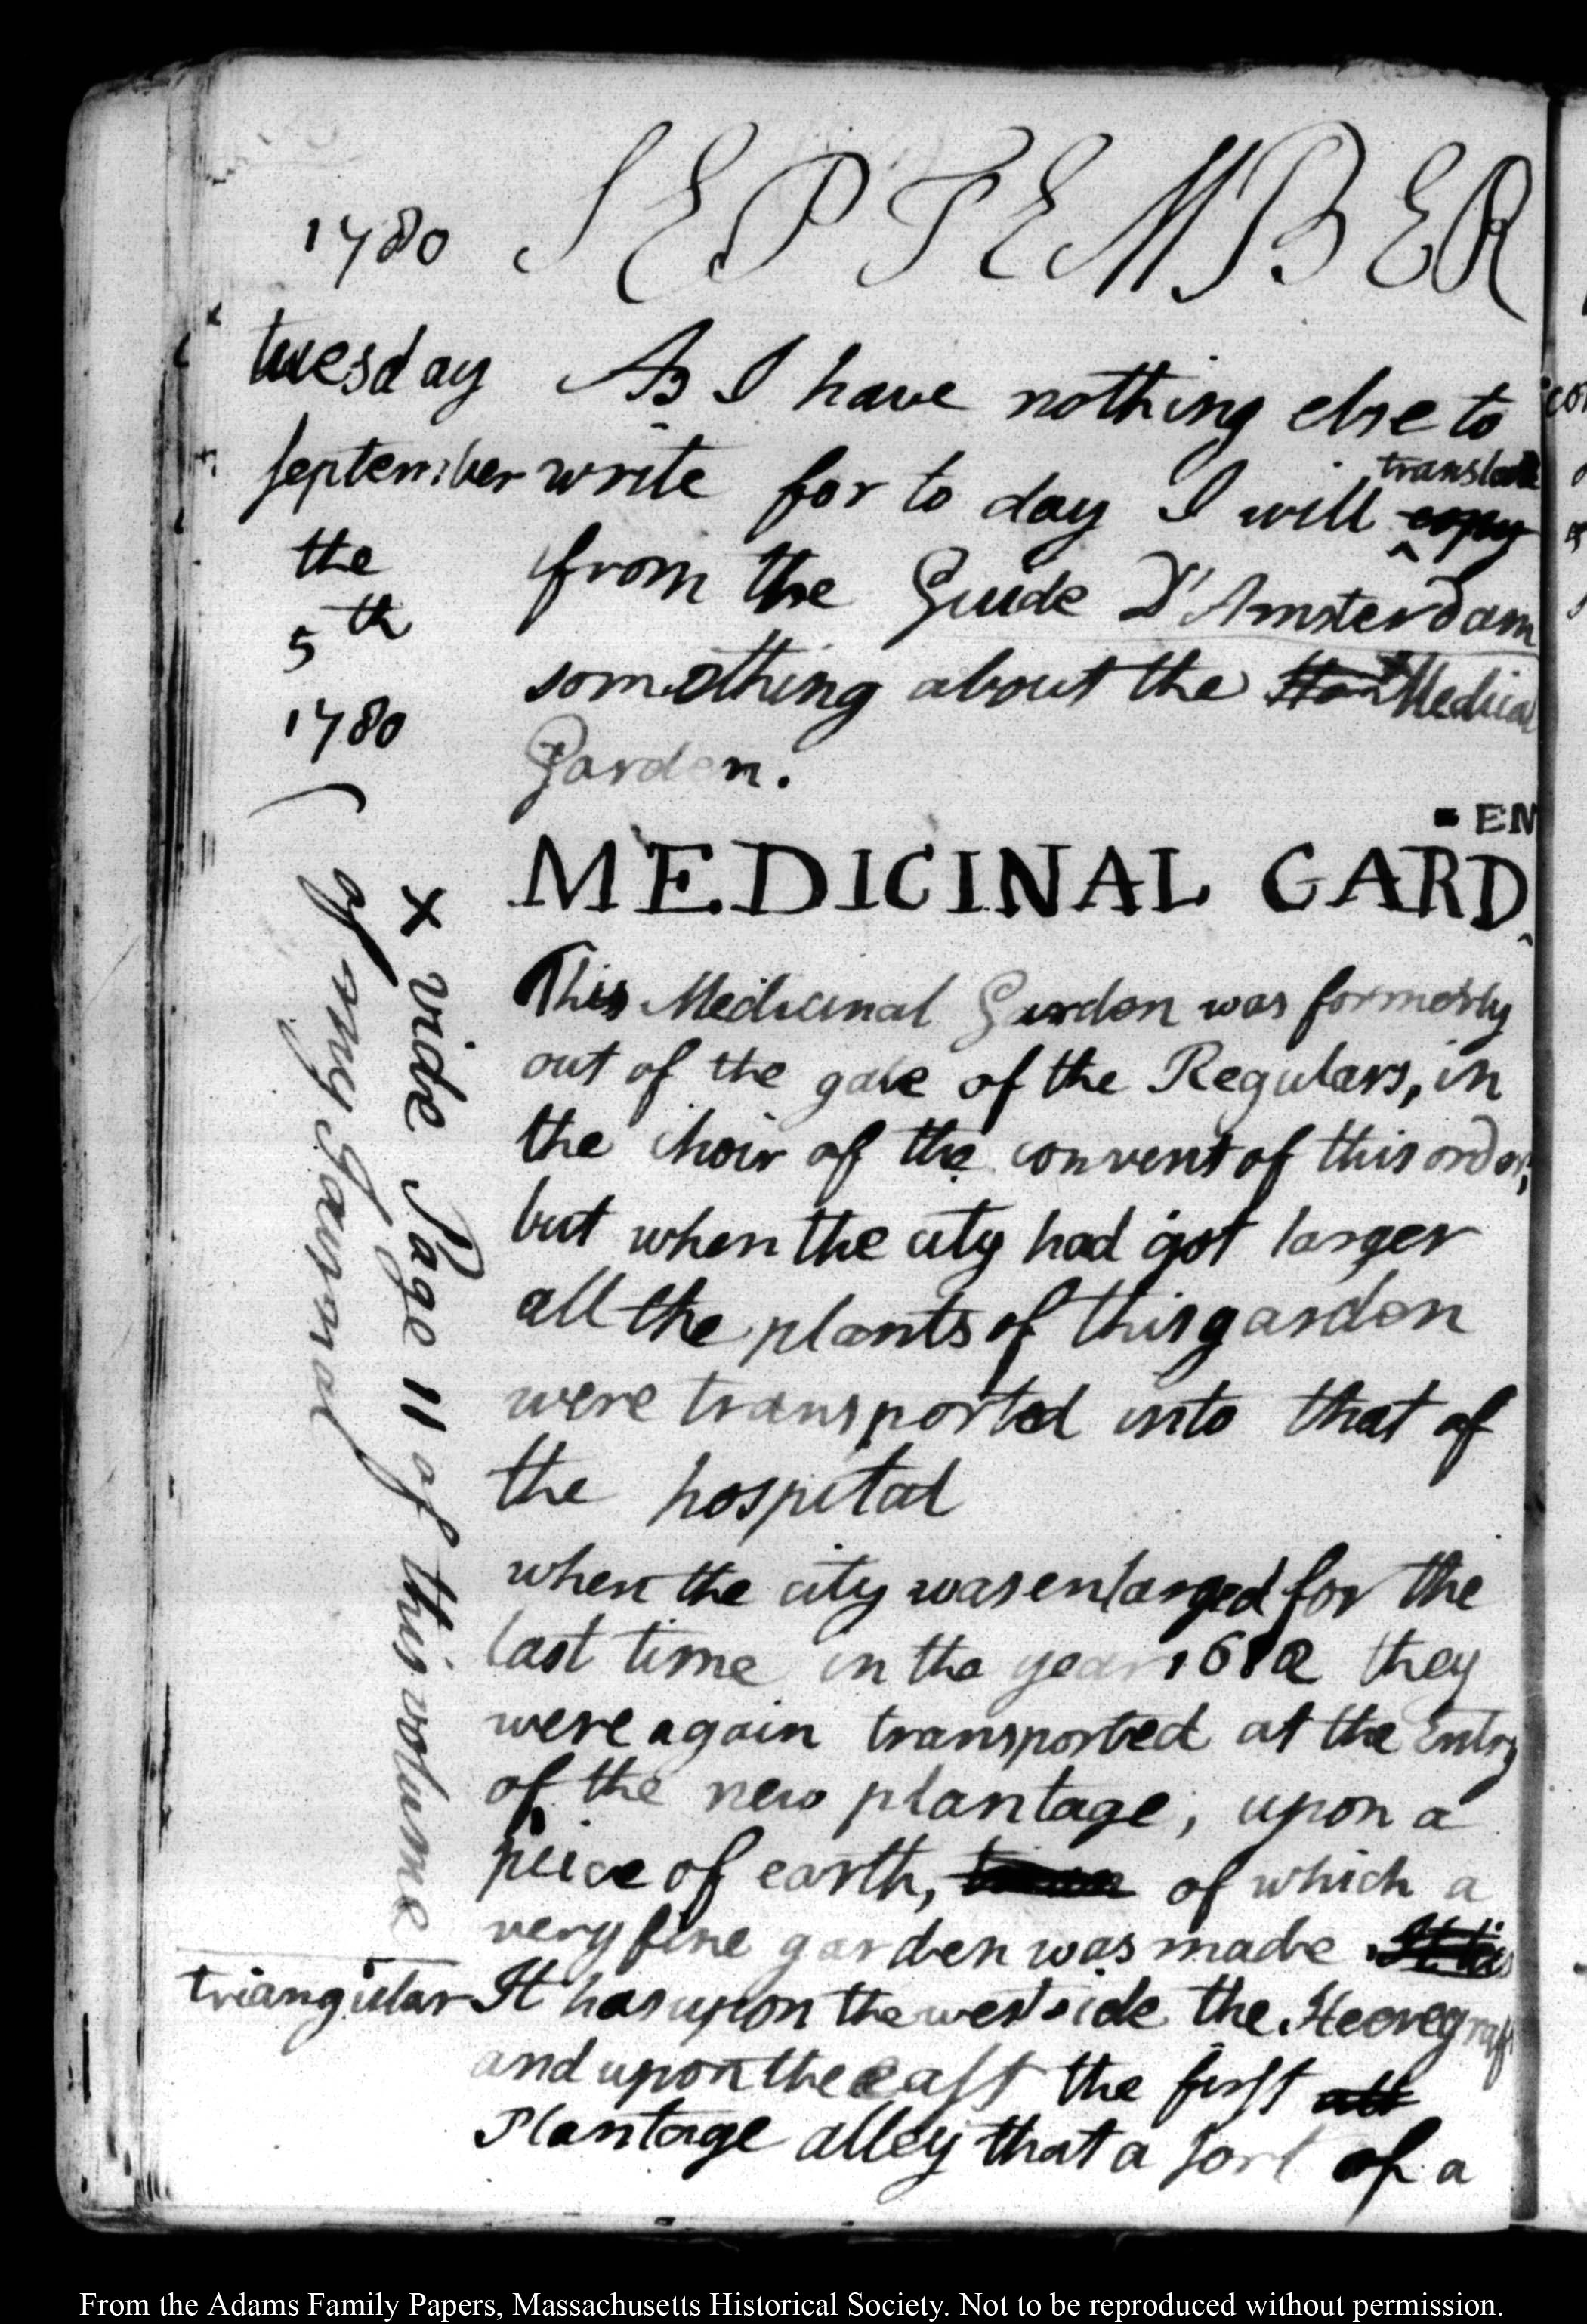 1780 SEPTEMBER
tuesday
september
the
5th
1780
As I have nothing else to
write for to day I will copy translate
from the Guide D'Amsterdam
something about the Medical
Garden.
MEDICINAL GARD=EN
This Medicinal Garden was formerly
out of the gate of the Regulars, in
the choir of the convent of this order,
but when the city had got larger
all the plants of this garden
were transported into that of
the hospital
when the city was enlarged for the
last time in the year 1682 they
were again transported at the Entry
of the new plantage, upon a
peice of earth, of which a
very fine garden was made It is
It has upon the west side the Heeregraft
and upon the east the first all
Plantage alley that a sort of a
triangular
x vide Page 11 of this volume
of my Journal
From the Adams Family Papers, Massachusetts Historical Society. Not to be reproduced without permission.